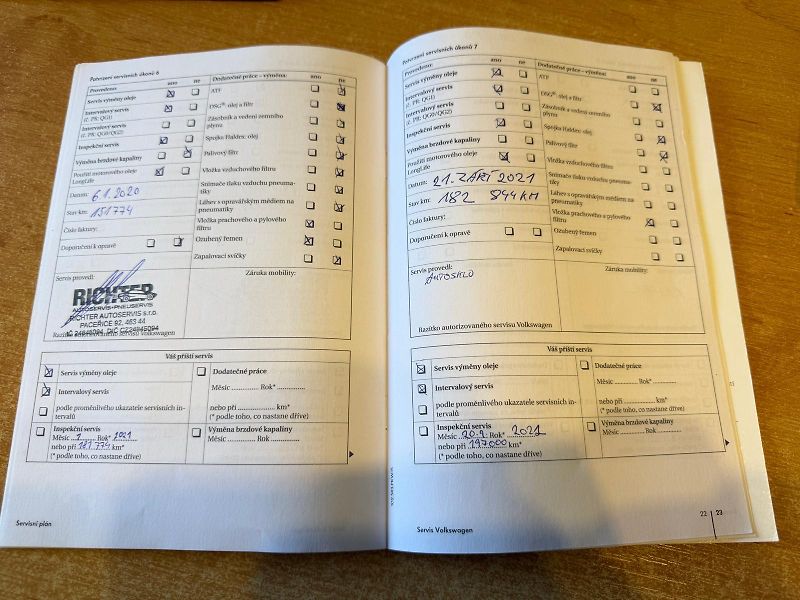 Potvrzení servisních úkonů 6
ano ne Dodatečné práce – výměna: ano ne
Provedeno:
Servis výměny oleje ATF
Intervalový servis
(č. PR: QG1) DSG®: olej a filtr
Intervalový servis
(č. PR: QG0/QG2) Zásobník a vedení zemního
plynu
Inspekční servis Spojka Haldex: olej
Výměna brzdové kapaliny Palivový filtr
Použití motorového oleje
LongLife Vložka vzduchového filtru
Datum: 6.1.2020 Snímače tlaku vzduchu pneuma-
tiky
Stav km: 151774 Láhev s opravářským médiem na
pneumatiky
Číslo faktury: Vložka prachového a pylového
filtru
Doporučení k opravě Ozubený řemen
Zapalovací svíčky
Servis provedl: Záruka mobility:
RICHTER
AUTOSERVIS-PNEUSERVIS
RICHTER AUTOSERVIS s.r.o.
PACEŘICE 92, 463 44
Razítko autorizovaného servisu Volkswagen
Váš příští servis
Servis výměny oleje Dodatečné práce
Intervalový servis Měsíc .............. Rok* ..............
podle proměnlivého ukazatele servisních in-
tervalů nebo při .............. km*
(* podle toho, co nastane dříve)
Inspekční servis Výměna brzdové kapaliny
Měsíc 1 Rok* 2021 Měsíc .............. Rok* ..............
nebo při 181.774 km*
(* podle toho, co nastane dříve)
Servisní plán
Potvrzení servisních úkonů 7
Provedeno: ano ne Dodatečné práce – výměna: ano ne
Servis výměny oleje ATF
Intervalový servis
(č. PR: QG1) DSG®: olej a filtr
Intervalový servis
(č. PR: QG0/QG2) Zásobník a vedení zemního
plynu
Inspekční servis Spojka Haldex: olej
Výměna brzdové kapaliny Palivový filtr
Použití motorového oleje
LongLife Vložka vzduchového filtru
Datum: 21. ZÁŘÍ 2021 Snímače tlaku vzduchu pneuma-
tiky
Stav km: 182 844 KM Láhev s opravářským médiem na
pneumatiky
Číslo faktury: Vložka prachového a pylového
filtru
Doporučení k opravě Ozubený řemen
Zapalovací svíčky
Servis provedl: Záruka mobility:
Razítko autorizovaného servisu Volkswagen
Váš příští servis
Servis výměny oleje Dodatečné práce
Intervalový servis Měsíc .............. Rok* ..............
podle proměnlivého ukazatele servisních in-
tervalů nebo při .............. km*
(* podle toho, co nastane dříve)
Inspekční servis Výměna brzdové kapaliny
Měsíc 20.9. Rok* 2021 Měsíc .............. Rok* ..............
nebo při 197000 km*
(* podle toho, co nastane dříve)
Servis Volkswagen
22 23